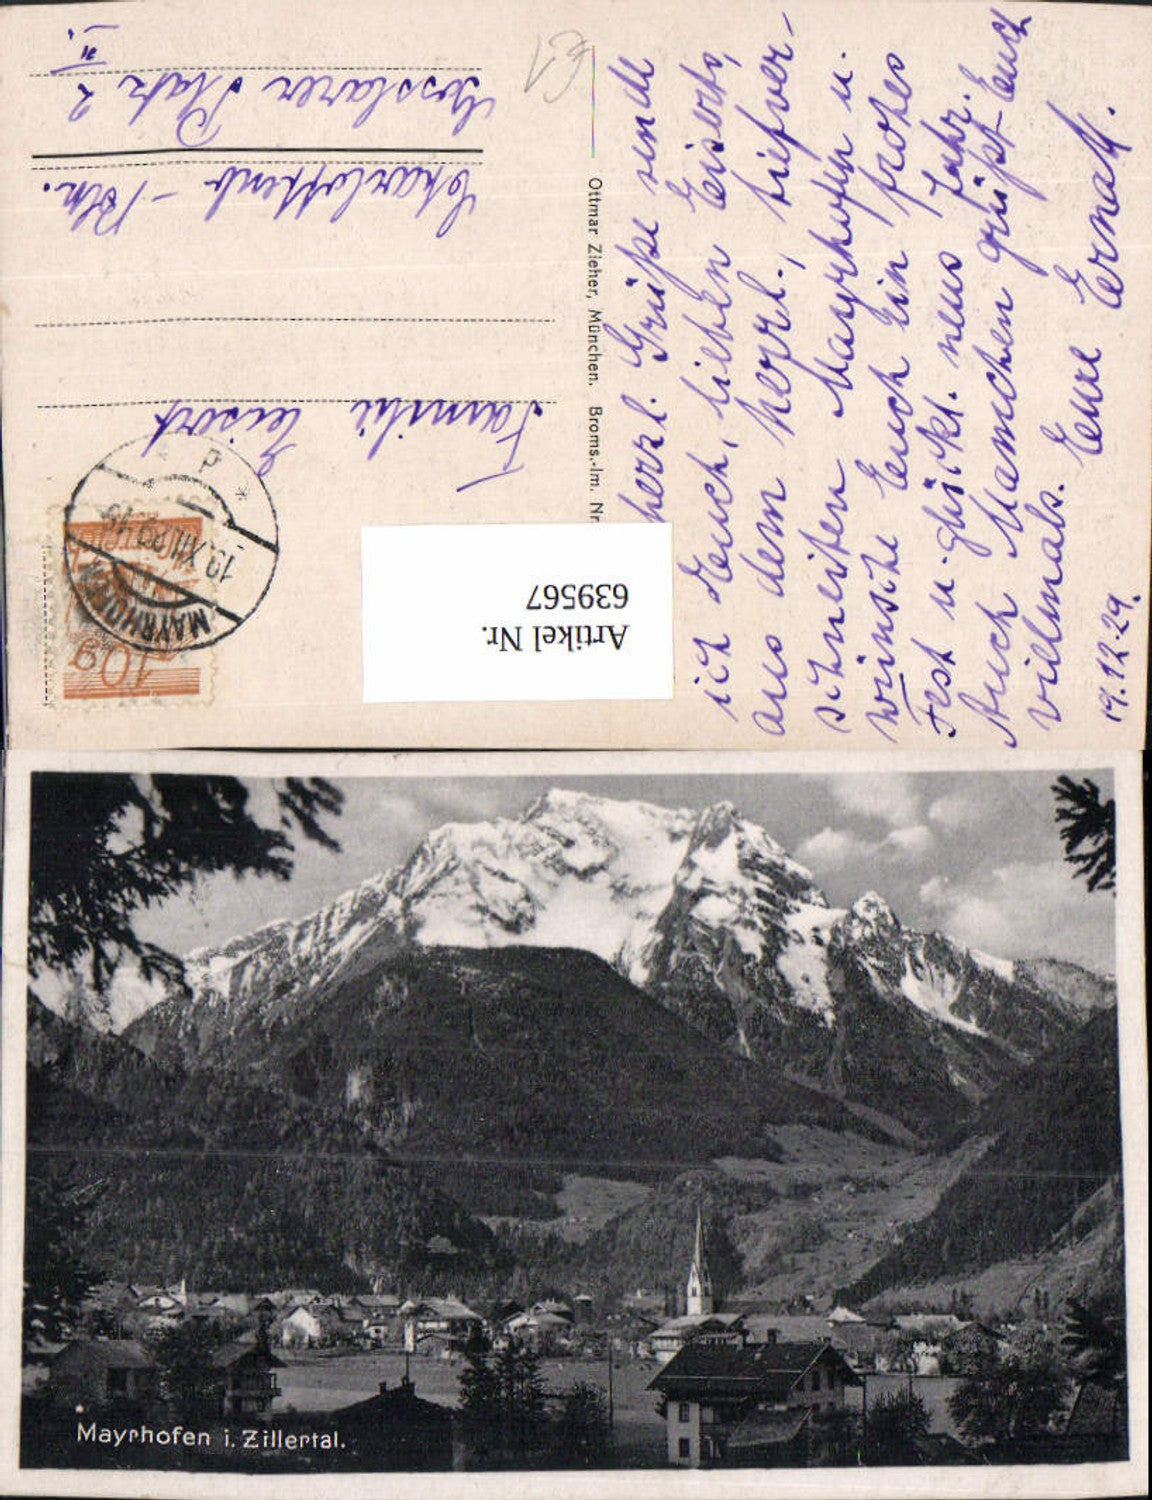 herzl. Grüße sende
ich Euch, lieben Eiserts,
aus dem herrl., tiefver-
schneiten Mayrhofen u.
wünsche Euch ein frohes
Fest u. glückl. neues Jahr.
Auch Mamchen grüßt Euch
vielmals. Eure Erna M.
19.12.29.
Ottmar Zieher, München. Broms.-Im. Nr.
Familie Eisert
Charlottenb-Bln.
Gosslarer Platz 2
II.
10g
MAYRHOFEN
19.XII.29
Artikel Nr.
639567
Mayrhofen i. Zillertal.